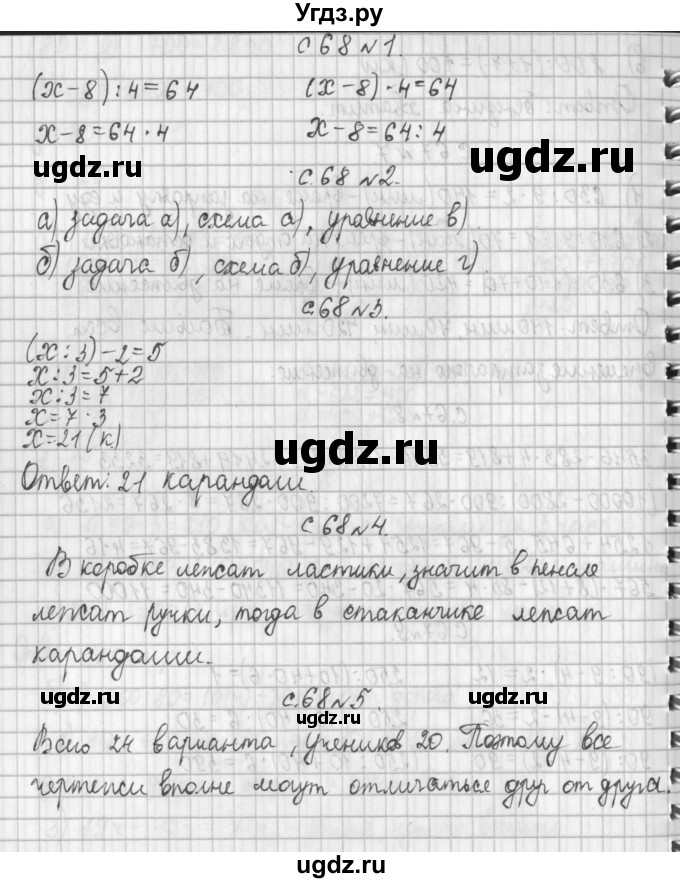 Угдз.ру
С 68 №1.
(x-8):4=64 (x-8)·4=64
x-8=64·4 x-8=64:4
ugdz.ru ugdz.ru
с.68 №2.
а) задача а), схема а), уравнение в)
б) задача б), схема б), уравнение г).
с.68 №3.
(x:3)-2=5
x:3=5+2
x:3=7
x=7·3
x=21(к)
Ответ: 21 карандаш.
с.68 №4.
В коробке лежат ластики, значит в пенале
лежат ручки, тогда в стаканчике лежат
карандаши.
ugdz.ru с.68 №5. ugdz.ru
ugdz.ru
Всего 24 варианта, учеников 20. Поэтому все
чертежи вполне могут отличаться друг от друга.
ugdz.ru